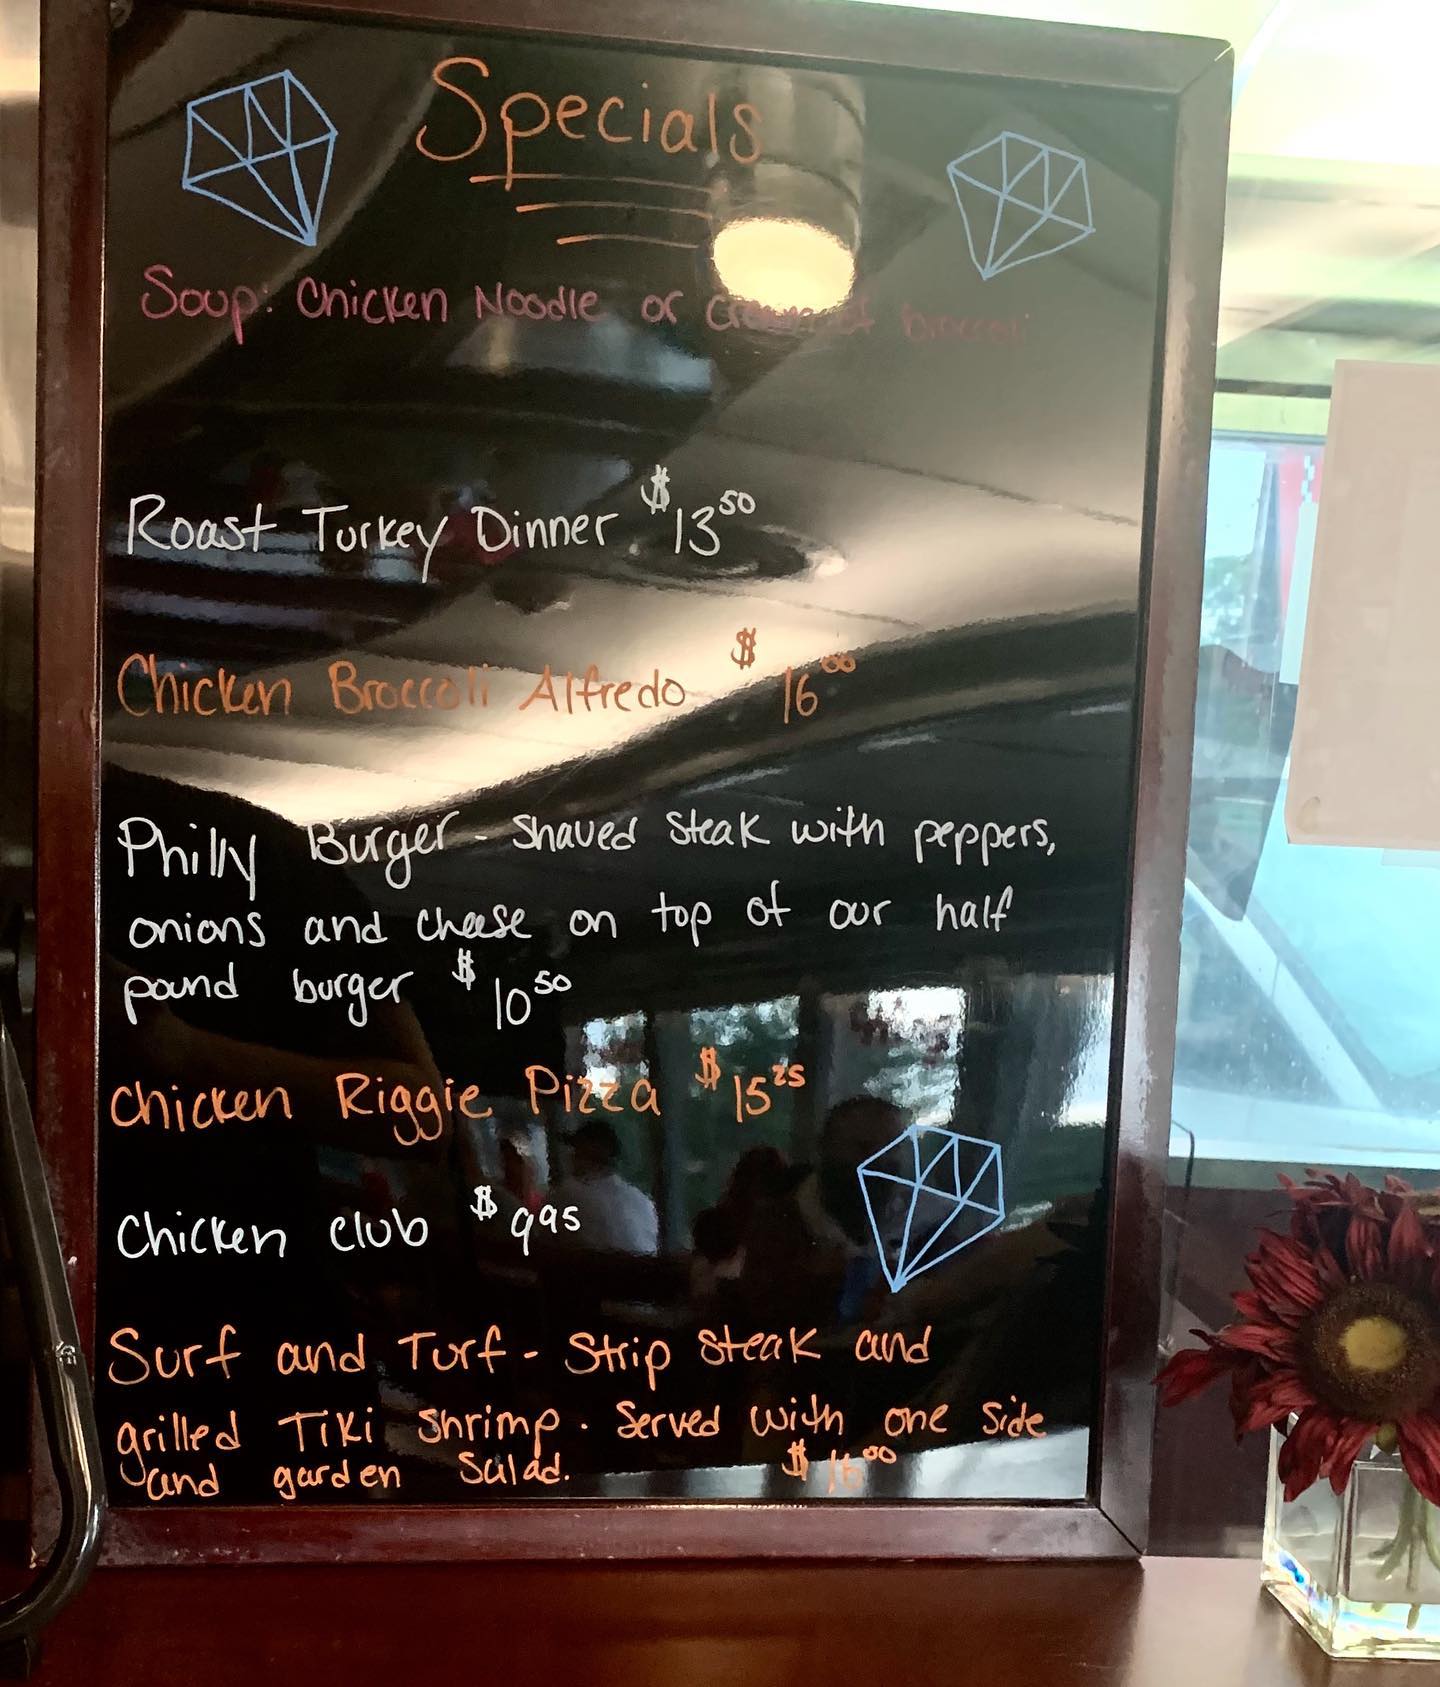 Specials
Soup: Chicken Noodle or Cream of broccoli
Roast Turkey Dinner $13.50
Chicken Broccoli Alfredo $16.00
Philly Burger - Shaved steak with peppers,
onions and cheese on top of our half
pound burger $10.50
Chicken Riggie Pizza $15.25
Chicken club $9.95
Surf and Turf - Strip steak and
grilled Tiki shrimp. Served with one side
and garden salad. $16.00